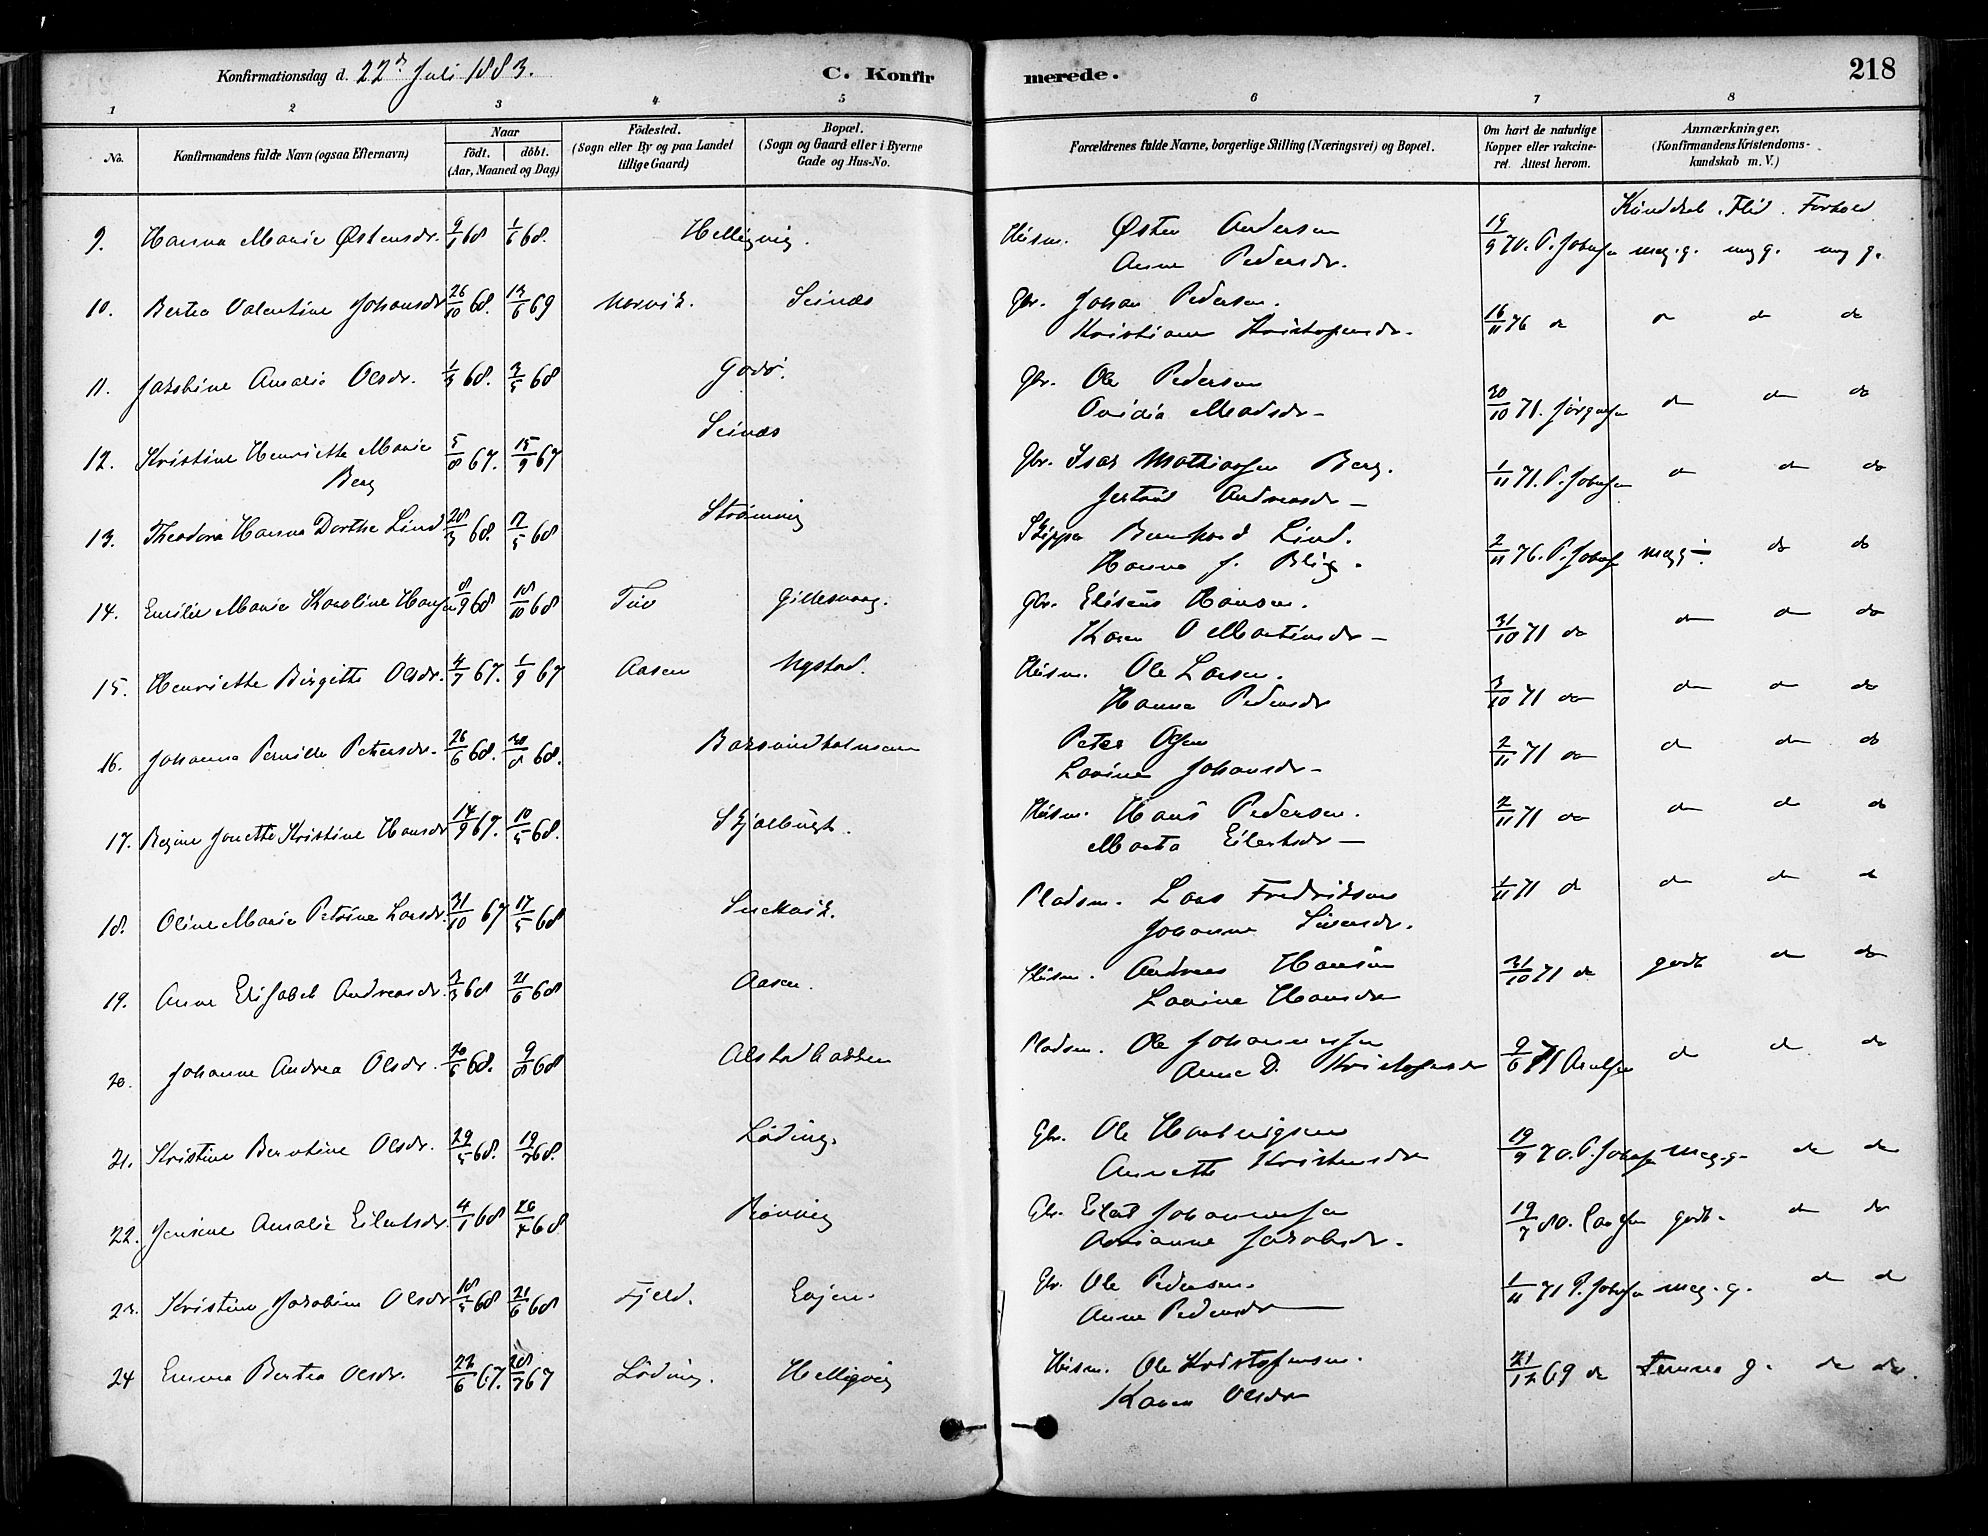 Konfirmationsdag d. 22de Juli 1883.
C. Konfirmerede.
218
1 2 3 4 5 6 7 8
No.
Konfirmandens fulde Navn (ogsaa Efternavn)
Naar
födt. döbt.
(Aar, Maaned og Dag)
Födested.
(Sogn eller By og paa Landet
tillige Gaard)
Bopæl.
(Sogn og Gaard eller i Byerne
Gade og Hus-No.
Forældrenes fulde Navne, borgerlige Stilling (Næringsvei) og Bopæl.
Om havt de naturlige
Kopper eller vakcine-
ret. Attest herom.
Anmærkninger.
(Konfirmandens Kristendoms-
kundskab m. V.)
Kundskab. Flid. Forhold
9. Hanna Marie Østensdr. 9/1 68 1/6 68. Helligvig. Husm. Østen Andersen 19/9 70. P. Johnsen meg. g. meg g. meg g.
Anne Pedersdr.
10. Bertea Valentine Johansdr 26/10 68. 13/6 69 Nesvik. Seinæs Gbr. Johan Pedersen. 16/11 76 do do do do
Kristiane Kristofersdr.
11. Jakobine Amalie Olsdr. 1/3 68. 3/5 68 Godø. Gbr. Ole Pedersen 30/10 71. Jørgensen do do do
Ovidia Madsdr
12. Kristine Henriette Marie 5/8 67. 15/9 67 Seinæs Gbr. Isak Mathiassen Berg. 1/11 71. P. Johnsen do do do
Berg Jertrud Andreasdr
13. Theodora Hanna Dorthe Lind 28/3 68. 17/5 68 Strømvig Skipper Bernhard Lind. 2/11 76. P. Johnsen meg g. do do
Hanna f. Blix.
14. Emilie Marie Karoline Hansen 8/9 68 18/10 68 Tuv Gillesvaag. Gbr. Eliseus Hansen. 31/10 71 do do do do
Karen O Martinsdr
15. Henriette Birgitte Olsdr. 4/7 67. 1/9 67 Aasen Nystad. Husm. Ole Larsen. 3/10 71 do do do do
Hanna Pedersdr
16. Johanna Pernille Petersdr. 26/6 68. 30/8 68. Baksundholmen Peter Olsen 2/11 71 do do do do
Lovine Johansdr
17. Regine Jonette Kristine Hansdr 14/9 67. 10/5 68. Skjælbugt. Husm. Hans Pedersen. 2/11 71 do do do do
Marta Eilertsdr
18. Oline Marie Petrine Larsdr. 31/10 67 17/5 68 Snekvik. Pladsm. Lars Fredriksen 1/11 71 do do do do
Johanne Sivensdr.
19. Anne Elisabet Andreasdr. 3/3 68 21/6 68 Aasen. Husm. Andreas Hansen 31/10 71 do godt do do
Lovine Hansdr
20. Johanne Andrea Olsdr. 20/6 68. 9/8 68 Alstadbakken Pladsm. Ole Johannessen 9/6 71 do do do
Anne D. Kristofersdr
21. Kristine Berntine Olsdr. 29/5 68. 19/7 68. Løding. Gbr. Ole Hartvigsen 19/9 70. P. Johnsen meg. g. do do
Annette Kristensdr
22. Jensine Amalie Eilertsdr. 4/1 68 26/4 68 Rønvig Gbr. Eilert Johannessen 19/7 80. godt. do do
Arianne Jakobsdr.
23. Kristine Jakobine Olsdr 18/5 68 21/6 68 Fjeld. Evjen. Gbr. Ole Pedersen. 1/11 71 P. Johnsen meg. g. do do
Anne Pedersdr
24 Emma Bertea Olsdr. 22/6 67. 28/7 67 Løding. Helligvig Husm. Ole Kristofersen. 21/12 69 do temme g. do do.
Karen Olsdr